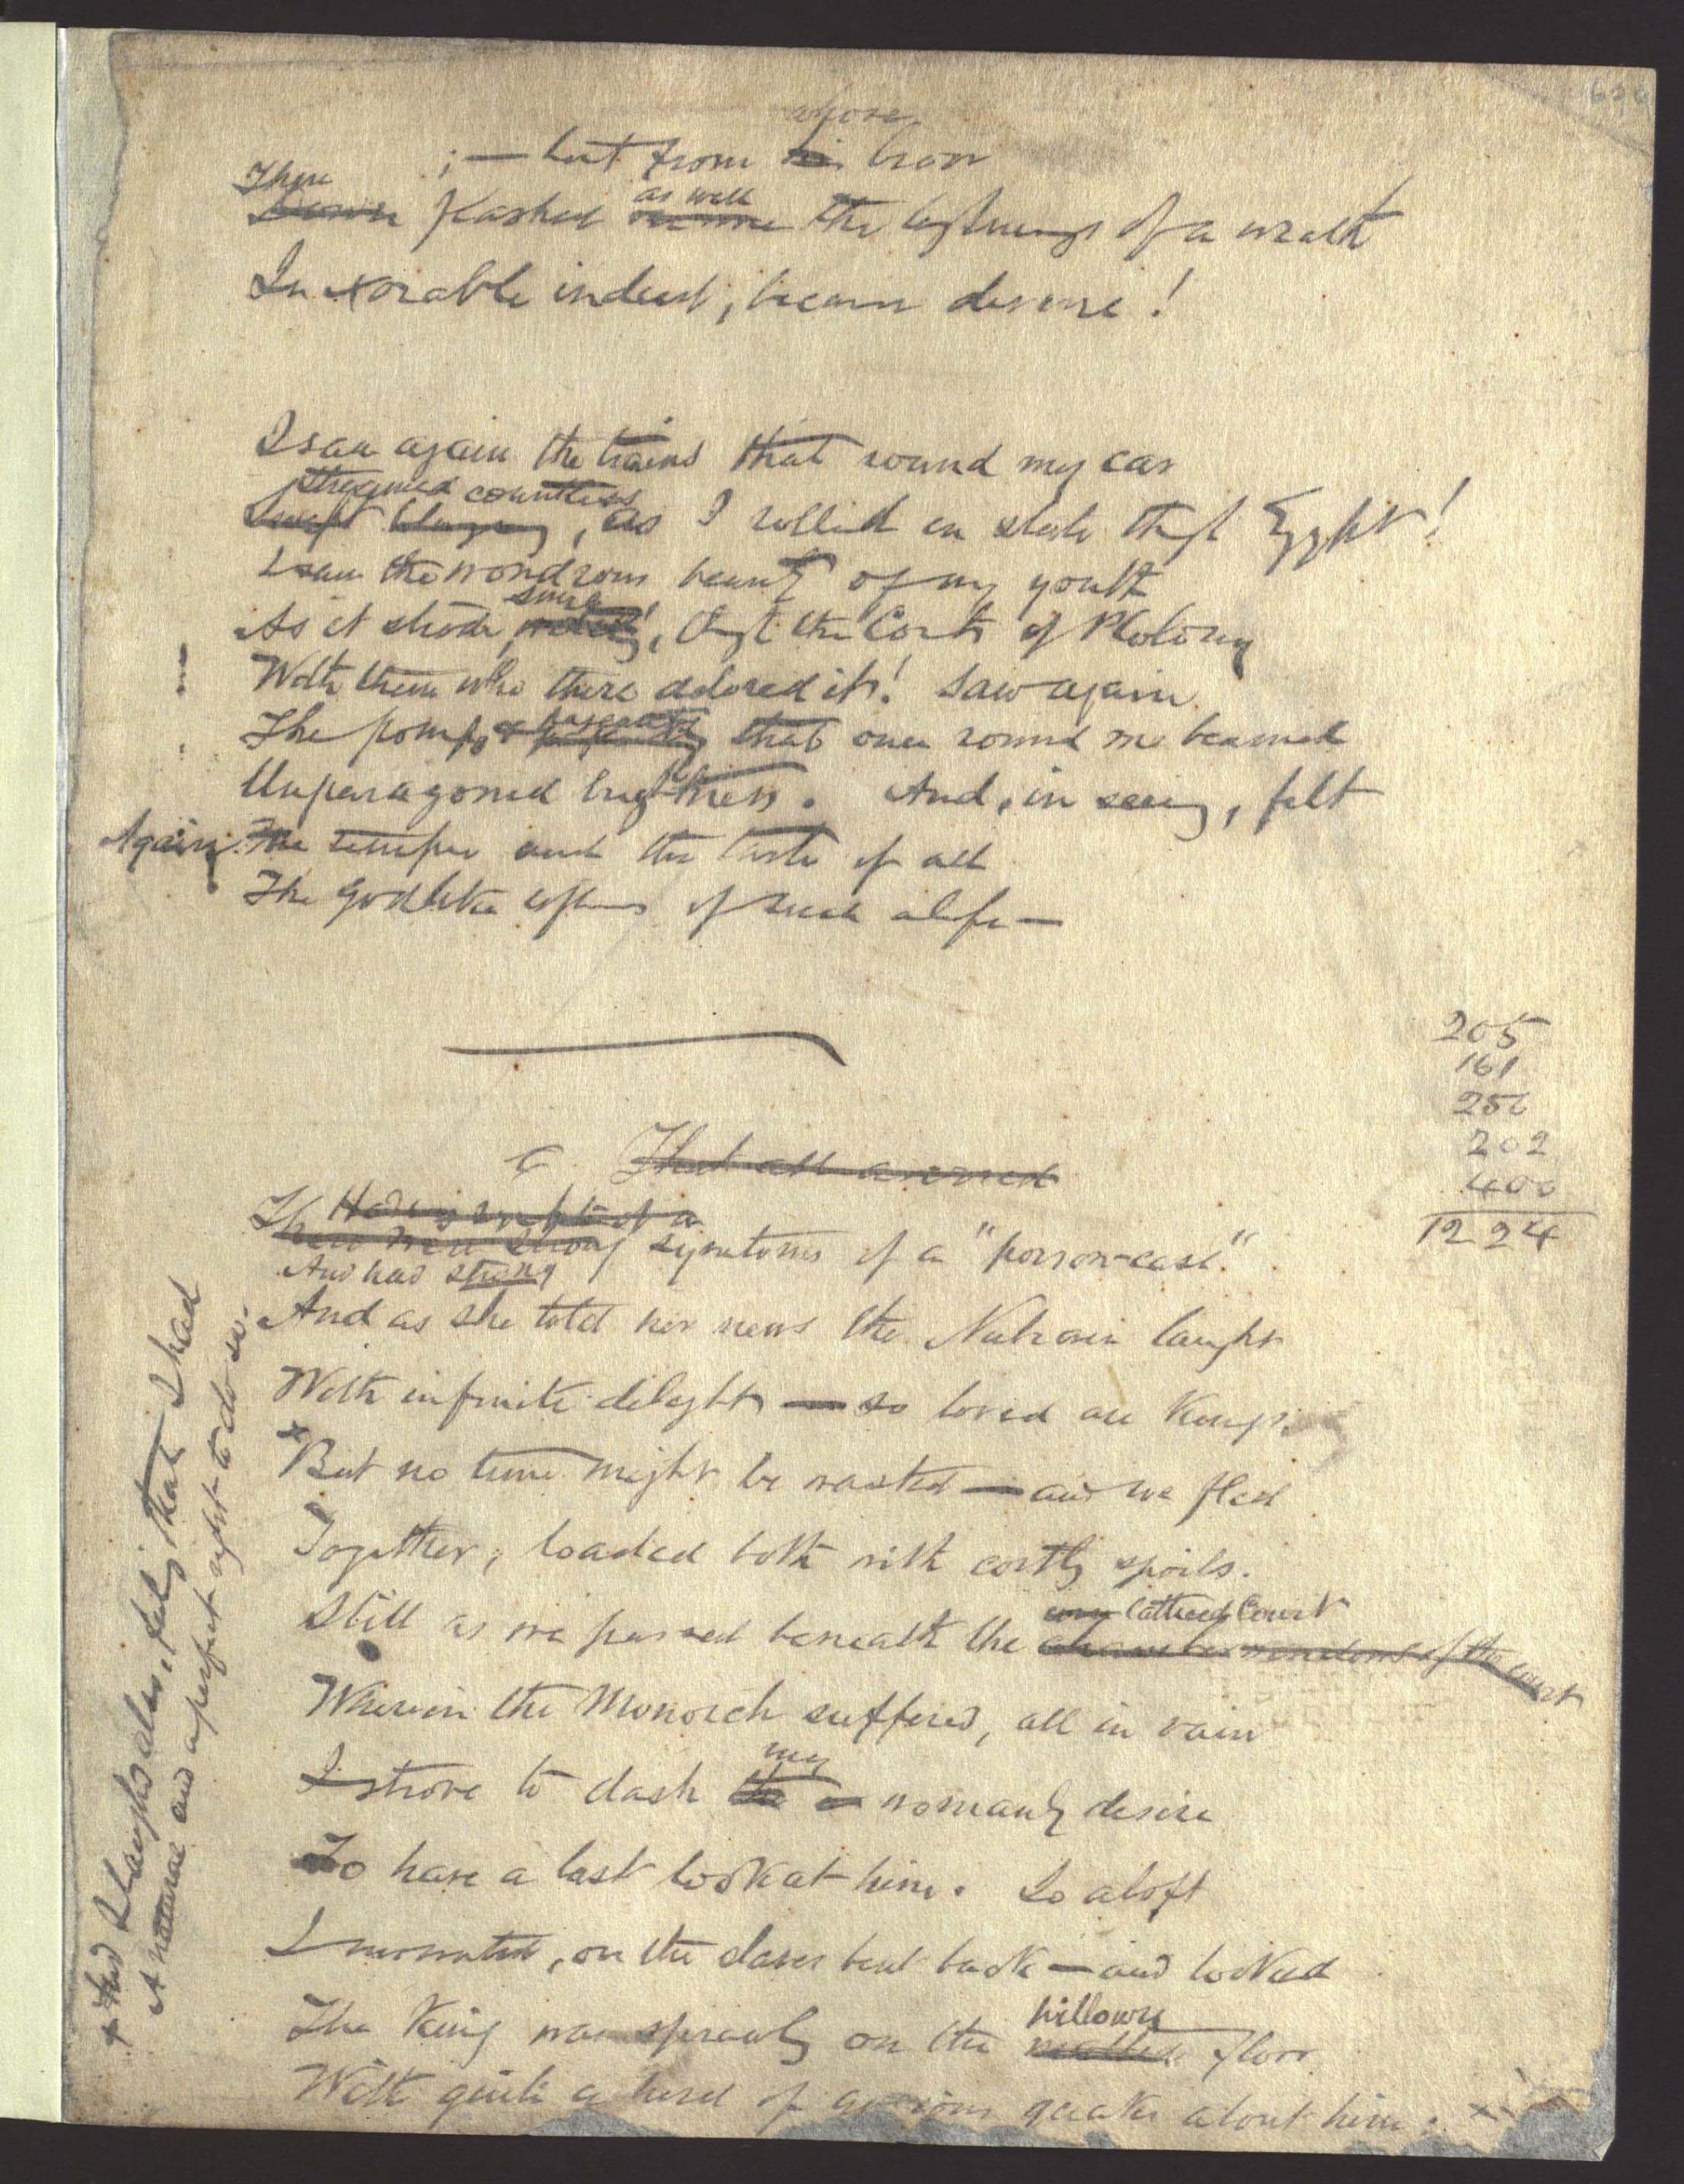 above
; — but from his brow
There
flashed as well the lightnings of a wrath
Inexorable indeed, because divine!
I saw again the trains that round my car
streamed countless
Swept, as I rolled in state thro' Egypt!
I saw the wondrous beauty of my youth
some
As it strode, thro' the Courts of Ptolemy
With them who there adored it! Saw again
The pomps & pageants that once round me beamed
Unparagoned brightness. And, in seeing, felt
Again. The and the taste of all
The Godlike of such a life —
205
161
256
202
400
1224
That all
Had
There were strong symptoms of a "poison-case."
And had strong
And as she told her news the Nubian laught
With infinite delight — so loved are Kings.
x But no time might be wasted — and we fled
Together, loaded both with costly spoils.
latticed Court
Still as we passed beneath the chamber windows of the court
Wherein the Monarch suffered, all in vain
my
I strove to dash the womanly desire
To have a last look at him. So aloft
I mounted, on the slaves bent back — and looked
pillowy
The King was sprawling on the floor
With quite a herd of anxious quacks about him: x
x And I laughed also, feeling that I had
A natural and a perfect right to do so.